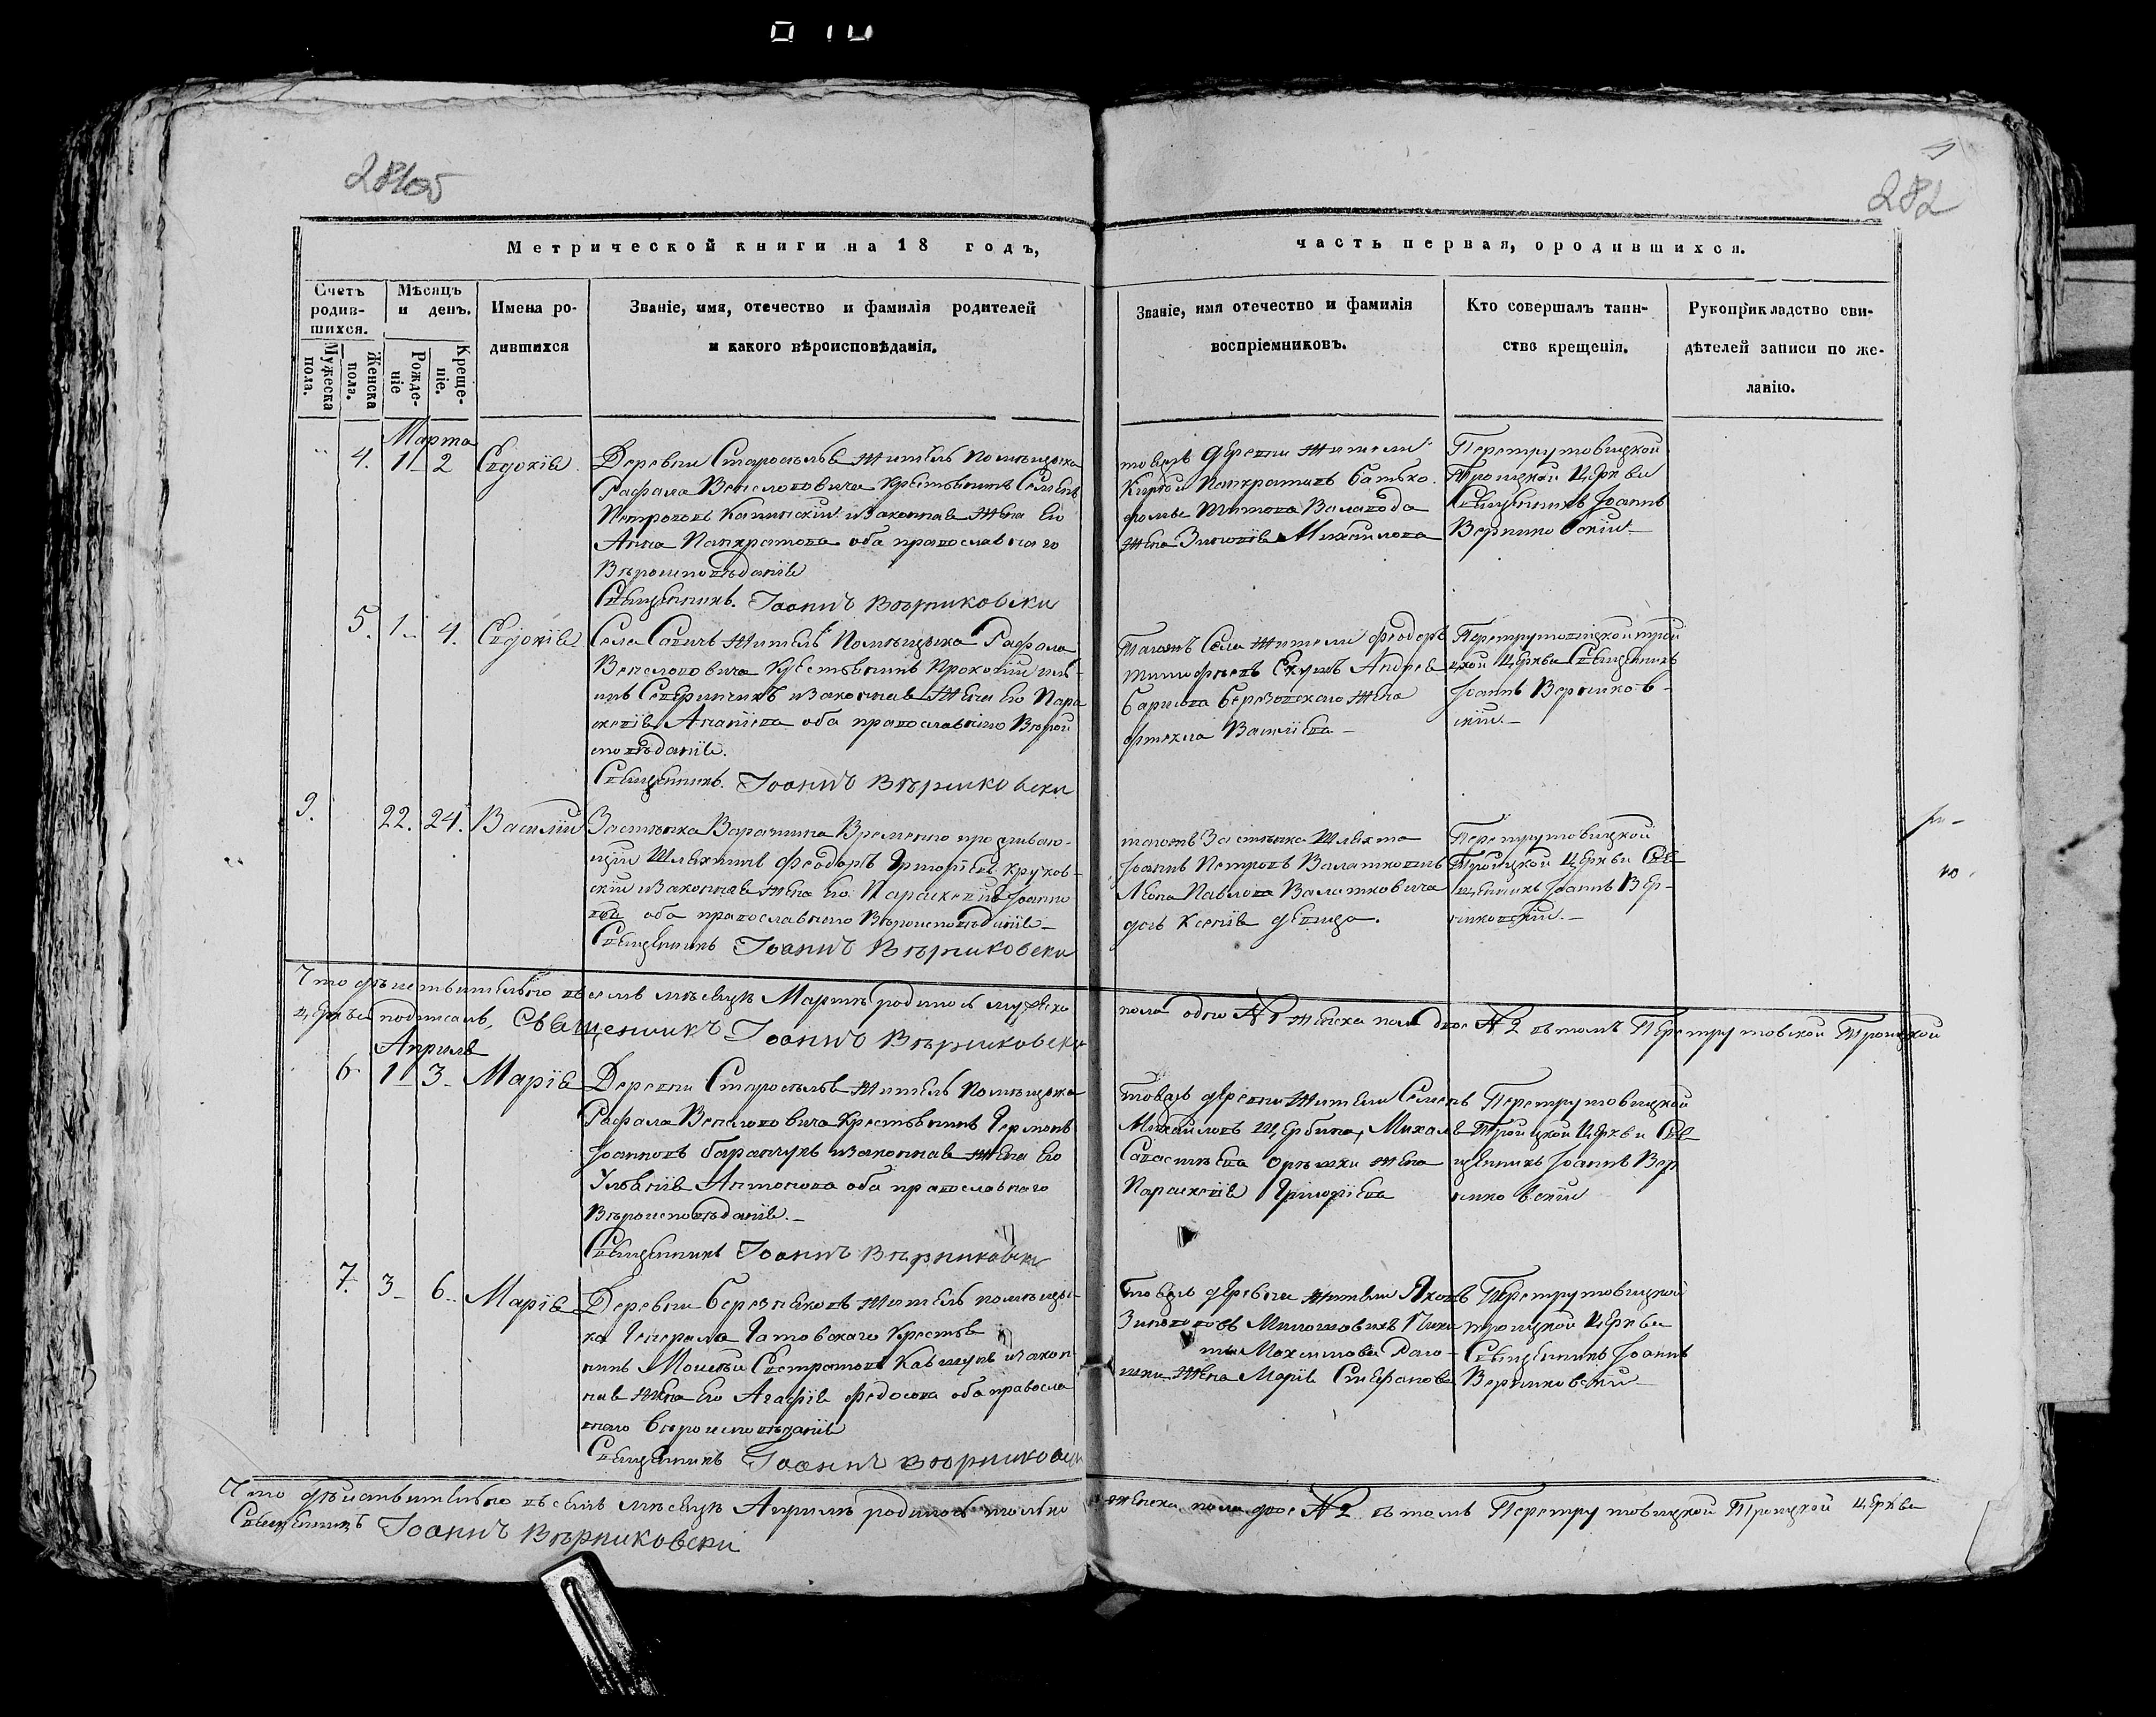 281об
282
Метрической книги на 18 годъ,
часть первая, о родившихся.
Счетъ родив-
шихся.
Мужеска пола.
Женска пола.
Мѣсяцъ и день.
Рожде-
ніе
Креще-
ніе.
Имена ро-
дившихся
Званіе, имя, отечество и фамилія родителей
и какого вѣроисповѣданія.
Званіе, имя отечество и фамилія
воспріемниковъ.
Кто совершалъ таин-
ство крещенія.
Рукоприкладство сви-
дѣтелей записи по же-
ланію.
Марта
4. 1 2 Евдокія
Деревни Староселья житель помѣщика
Рафала Веселовича крестьянинъ Семенъ
Петровъ Калинскій и законная жена его
Анна Панкратова оба православнаго
Вѣроисповѣданія
Священникъ. Іоаннъ Вѣрниковски
тоежъ деревни жители
Панкратовъ Батько.
Титова Валавода
жена Зиновія Михайлова
Перетрутовицкой
Троицкой Церкви
Священникъ Іоаннъ
Верниковскій
5. 1 4. Евдокія
Села житель помѣщика Рафала
Веселовича крестьянинъ Прокопій
и законная жена его Пара
скевія Ананіева оба православнаго Вѣрои
сповѣданія.
Священникъ. Іоаннъ Вѣрниковски
тагожъ Села жители Феодоръ
Тимофеевъ Андрея
Березовскаго жена
Фтекла Василіева
Перетрутовицкой Трои
цкой Церкви Священникъ
Іоаннъ Верников-
скій
9. 22. 24. Василій
Застѣнка Варатина Временно проживаю-
щій Шляхтичъ Феодоръ Григоріевъ Круков-
скій и законная жена его Параскевія Іоанно
ва оба православнаго Вѣроисповѣданія
Священникъ Іоаннъ Вѣрниковски
тагожъ Застѣнка Шляхта
Іоаннъ Петровъ Валатковичъ
Леона Павлова Валатковича
дочь Ксенія девица.
Перетрутовицкой
Троицкой Церкви Свя
щенникъ Іоаннъ Вер-
никовскій.
Что дѣйствительно въ семъ мѣсяцѣ Мартѣ родилось мужеска
пола одно № 1 женска пола двое № 2 въ томъ Перетрутовской Троицкой
церкви подписалъ, Священникъ Іоаннъ Вѣрниковски
Апрель
6 1 3 Марія
Деревни Староселья житель помѣщика
Рафала Веселовича крестьянинъ Германъ
Іоанновъ Баранчукъ и законная жена его
Ульянія Антонова оба православнаго
Вѣроисповѣданія.
Священникъ Іоаннъ Вѣрниковски
тоежъ деревни жители Семенъ
Михайловъ Щербина, Михаля
Савастѣева Орешки жена
Параскевія Григоріева
Перетрутовицкой
Троицкой Церкви Свя
щенникъ Іоаннъ Вер
никовскій
7. 3 6 Марія
Деревни Березняковъ житель помѣщи-
ка Генерала Гатовскаго крестья
нинъ Моисей Евстратовъ и закон
ная жена его Агафія Федосова оба правосла
внаго вѣроисповѣданія
Священникъ Іоаннъ Вѣрниковски
тоежъ деревни жители Яковъ
Зиновьовъ
Максимова
жена Марія Стефанова
Перетрутовицкой
троицкой Церкви
Священникъ Іоаннъ
Верниковскій
Что дѣйствительно въ семъ мѣсяцѣ Апрелѣ родилось только
женска пола двое № 2 въ томъ Перетрутовицкой Троицкой церкви
Священникъ Іоаннъ Вѣрниковски